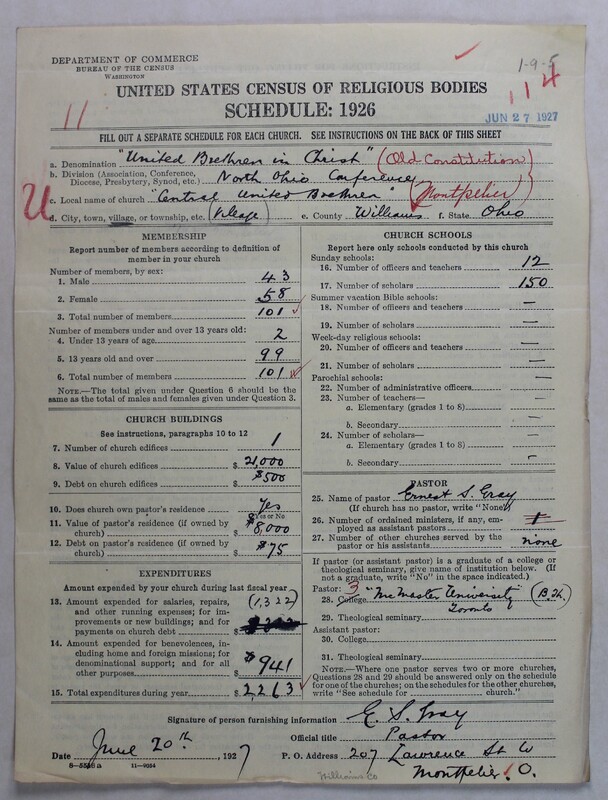 DEPARTMENT OF COMMERCE
BUREAU OF THE CENSUS
WASHINGTON
1-9-5
114
UNITED STATES CENSUS OF RELIGIOUS BODIES
SCHEDULE: 1926
11
JUN 27 1927
FILL OUT A SEPARATE SCHEDULE FOR EACH CHURCH. SEE INSTRUCTIONS ON THE BACK OF THIS SHEET
a. Denomination "United Brethren in Christ" (Old Constitution)
b. Division (Association, Conference, Diocese, Presbytery, Synod, etc.) North Ohio Conference
c. Local name of church "Central United Brethren" (Montpelier)
d. City, town, village, or township, etc. (Village) e. County Williams f. State Ohio
MEMBERSHIP
Report number of members according to definition of
member in your church
Number of members, by sex:
1. Male 43
2. Female 58
3. Total number of members 101
Number of members under and over 13 years old:
4. Under 13 years of age 2
5. 13 years old and over 99
6. Total number of members 101
NOTE.—The total given under Question 6 should be
the same as the total of males and females given under Question 3.
CHURCH BUILDINGS
See instructions, paragraphs 10 to 12
7. Number of church edifices 1
8. Value of church edifices $ 21,000
9. Debt on church edifices $ 500
10. Does church own pastor's residence Yes
Yes or No
11. Value of pastor's residence (if owned by
church) $ 8,000
12. Debt on pastor's residence (if owned by
church) $ 75
EXPENDITURES
Amount expended by your church during last fiscal year
13. Amount expended for salaries, repairs, (1,322)
and other running expenses; for im-
provements or new buildings; and for
payments on church debt $
14. Amount expended for benevolences,
including home and foreign missions; for
denominational support; and for all
other purposes $ 941
15. Total expenditures during year $ 2,263
CHURCH SCHOOLS
Report here only schools conducted by this church
Sunday schools:
16. Number of officers and teachers 12
17. Number of scholars 150
Summer vacation Bible schools:
18. Number of officers and teachers —
19. Number of scholars —
Week-day religious schools:
20. Number of officers and teachers —
21. Number of scholars —
Parochial schools:
22. Number of administrative officers —
23. Number of teachers—
a. Elementary (grades 1 to 8) —
b. Secondary —
24. Number of scholars—
a. Elementary (grades 1 to 8) —
b. Secondary —
PASTOR
25. Name of pastor Ernest S. Gray
(If church has no pastor, write "None")
26. Number of ordained ministers, if any, em-
ployed as assistant pastors 1
27. Number of other churches served by the
pastor or his assistants none
If pastor (or assistant pastor) is a graduate of a college or
theological seminary, give name of institution below. (If
not a graduate, write "No" in the space indicated.)
Pastor: 3
28. College "McMaster University" (B.Th.)
Toronto
29. Theological seminary
Assistant pastor:
30. College
31. Theological seminary
NOTE.—Where one pastor serves two or more churches,
Questions 28 and 29 should be answered only on the schedule
for one of the churches; on the schedules for the other churches,
write "See schedule for church."
Signature of person furnishing information E. S. Gray
Official title Pastor
Date June 20th, 1927 P. O. Address 207 Lawrence St W
Montpelier, O.
11-9034
Williams Co